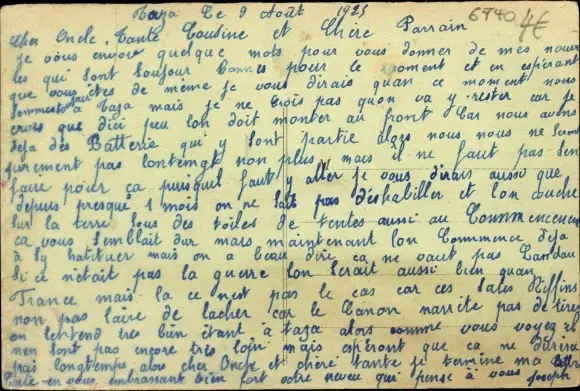 Taza Le 9 Août 1925
6740 4€
Cher Oncle, Tante Cousine et Chère Parrain
je vous envoie quelque mots pour vous donner de mes nouve
lles qui sont toujour bonnes pour le moment et en espérant
que vous êtes de meme je vous dirais quan ce moment nous
sommes toujours à Taza mais je ne crois pas quon va y rester car je
crois que dici peu lon doit monter au front Car nous avons
deja des Batterie qui y sont partie alors nous nous ne serons
surement pas lontemgt non plus mais il ne faut pas sen
faire pour ça puisquil faut y aller je vous dirais aussi que
depuis presque 1 mois on ne sait pas déshabiller et lon couche
sur la terre sous des toiles de tentes aussi au Commencement
ca vous semblait dur mars maintenant lon Commence deja
à sy habituer mais on a beau dire ca ne vaut pas Landau
si ce nétait pas la guerre lon serait aussi bien quan
France mais la ce nest pas le cas car ces sales Riffins
non pas laire de lacher car le Canon narrête pas de tirer
on lentend tres bien étant à taza alors comme vous voyez il
nen sont pas encore tres loin mais espéront que ca ne durera
pas longtemps alors cher Oncle et chère tante je termine ma
en vous embrassant bien fort votre neveu qui pense à vous Joseph